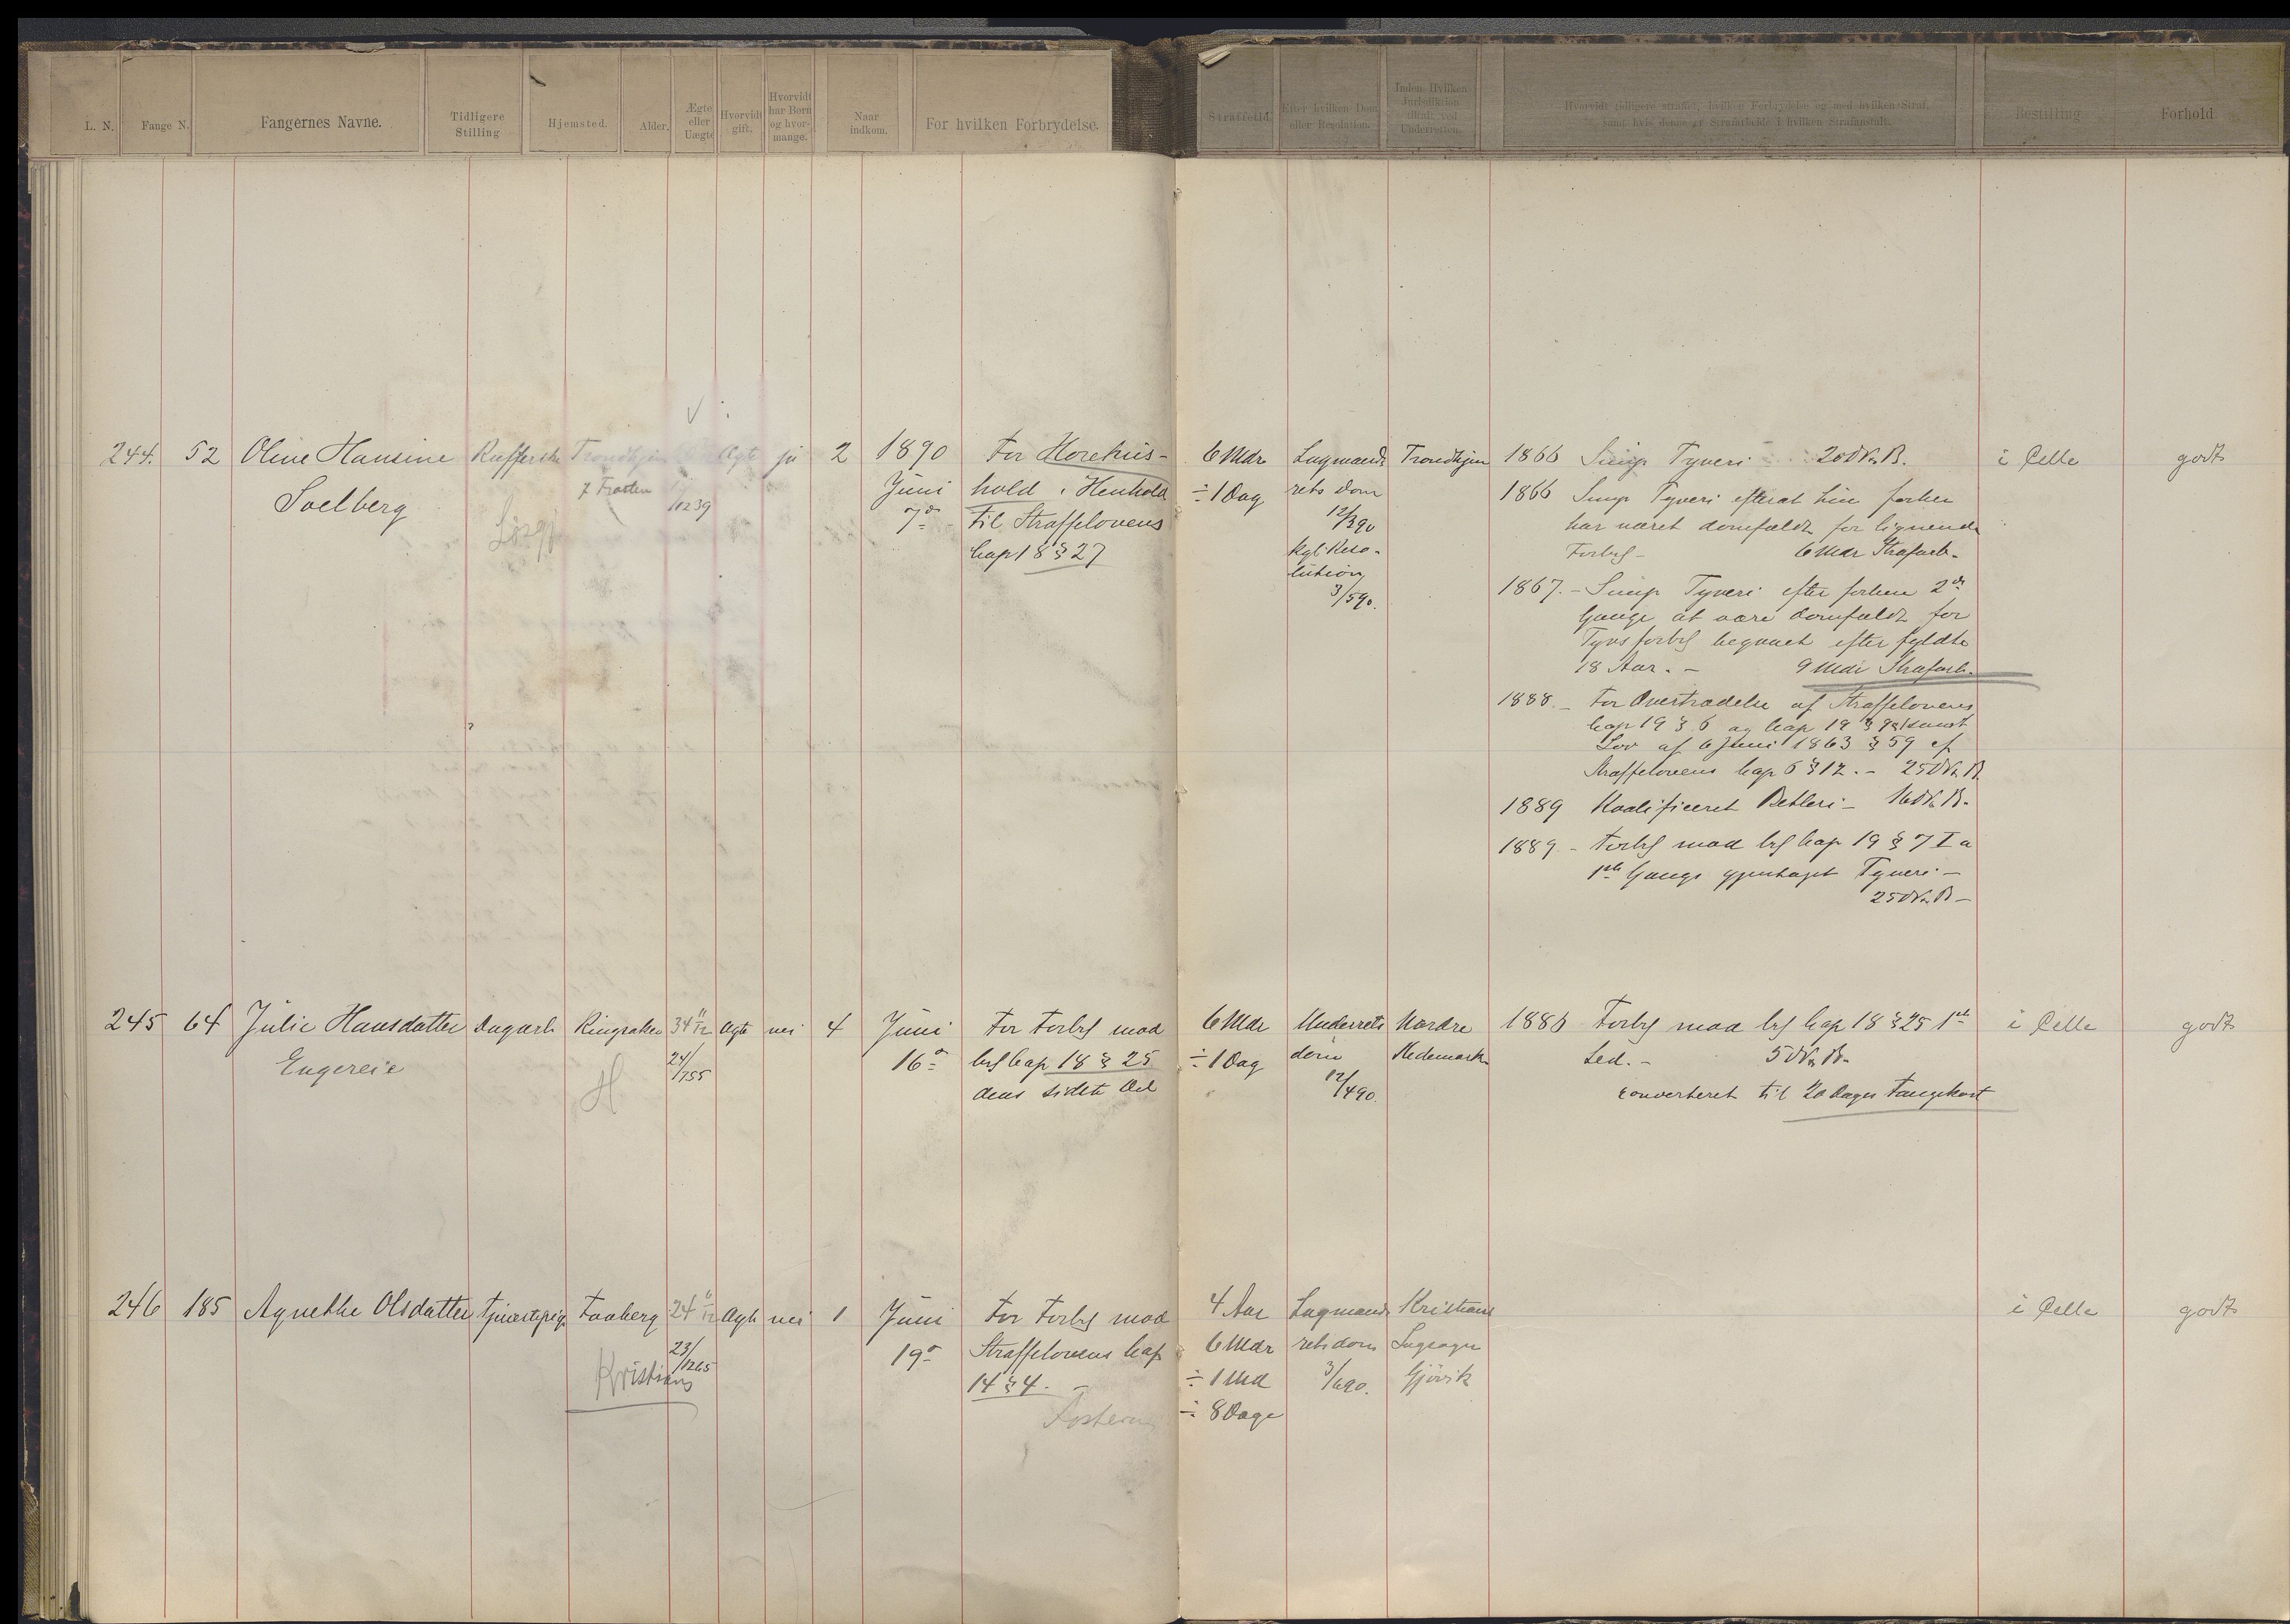 L. N.
Fange N.
Fangernes Navne.
Tidligere
Stilling
Hjemsted.
Alder.
Ægte
eller
Uægte
Hvorvidt
gift.
Hvorvidt
har Børn
og hvor-
mange.
Naar
indkom.
For hvilken Forbrydelse.
Straffetid.
Efter hvilken Dom
eller Resolution.
Inden Hvilken
Jurisdiktion
tiltalt ved
Underretten.
Hvorvidt tidligere straffet, hvilken Forbrydelse og med hvilken Straf,
samt hvis denne er Strafarbeide i hvilken Strafanstalt.
Bestilling
Forhold
244. 52 Oline Hansine
Soelberg
Trondhjem
f Frosten
1239
Ægt ja 2
1890
Juni
7de
For Horehus-
hold i Henhold
til Straffelovens
Cap 18 § 27
6 Mdr
÷ 1 Dag
Lagmands
rets Dom
12/3 90
Kgl. Reso-
lution
3/5 90.
Trondhjem
1866 Simp Tyveri 20 D V. B.
1866 Simp Tyveri efterat hun forhen
har været domfældt for lignende
Forbr - 6 Mdr Strafarb.
1867. - Simp Tyveri efter forhen 2de
Gange at være domfældt for
Tyvsforbr begaaet efter fyldte
18 Aar. - 9 Mdr Strafarb.
1888. - For Overtrædelse af Straffelovens
Cap 19 § 6 og Cap 19 § samt
Lov af 6 Juni 1863 § 59 cf
Straffelovens Cap 6 § 12. - 25 D V. B
1889 Kvalificeret Betleri - 16 D V. B.
1889 - Forbr mod Crl Cap 19 § 7 I a
1ste Gangs gjentaget Tyveri -
25 D V. B -
i Celle
godt
245 64 Julie Hansdatter
Engereie
Dagarb
Ringsaker
H
34 11/12
24/7 55
Ægte nei 4
Juni
16de
For Forbr mod
Crl Cap 18 § 25
dens sidste Del
6 Mdr
÷ 1 Dag
Underrets
dom
12/4 90.
Nordre
Hedemark
1886 Forbr mod Crl Cap 18 § 25 1ste
Led. - 5 D V. B.
converteret til 20 Dages Fangekost
i Celle
godt
246 185 Agnethe Olsdatter
Tjenestepige
Faaberg
Kristians
24 6/12
23/12 65
Ægte nei 1
Juni
19de
For Forbr mod
Straffelovens Cap
14 § 4. -
4 Aar
6 Mdr
÷ 1 Md
÷ 8 Dage
Lagmands
rets dom
3/6 90.
Kristians
Lagsogn
Gjøvik
i Celle
godt